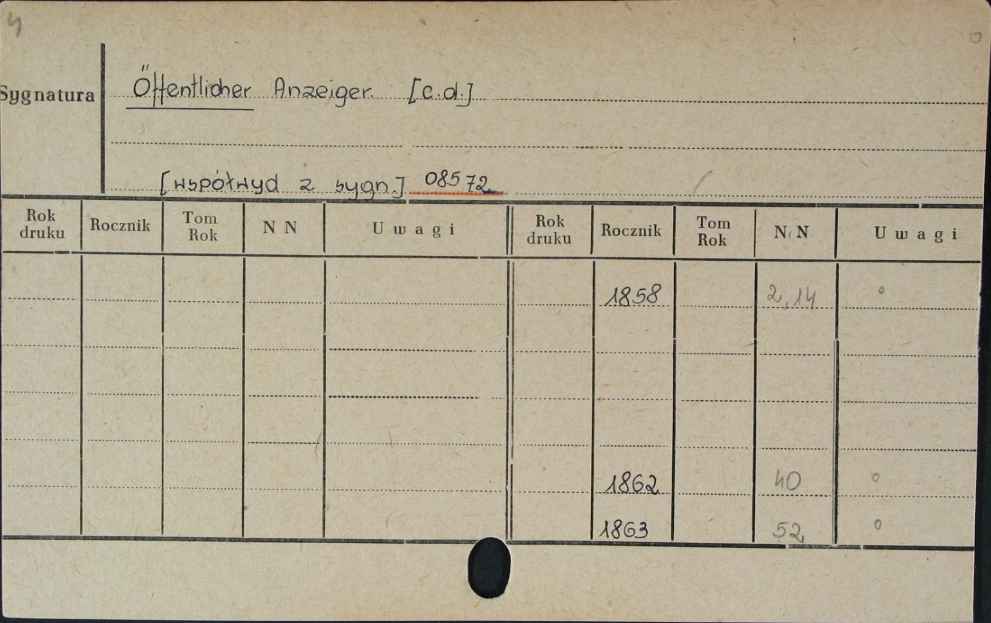 4
Sygnatura Öffentlicher Anzeiger. [c.d.]
[współwyd z sygn] 08572
Rok druku Rocznik Tom Rok N N Uwagi Rok druku Rocznik Tom Rok N N Uwagi
1858 2,14 °
1862 40 °
1863 52 °